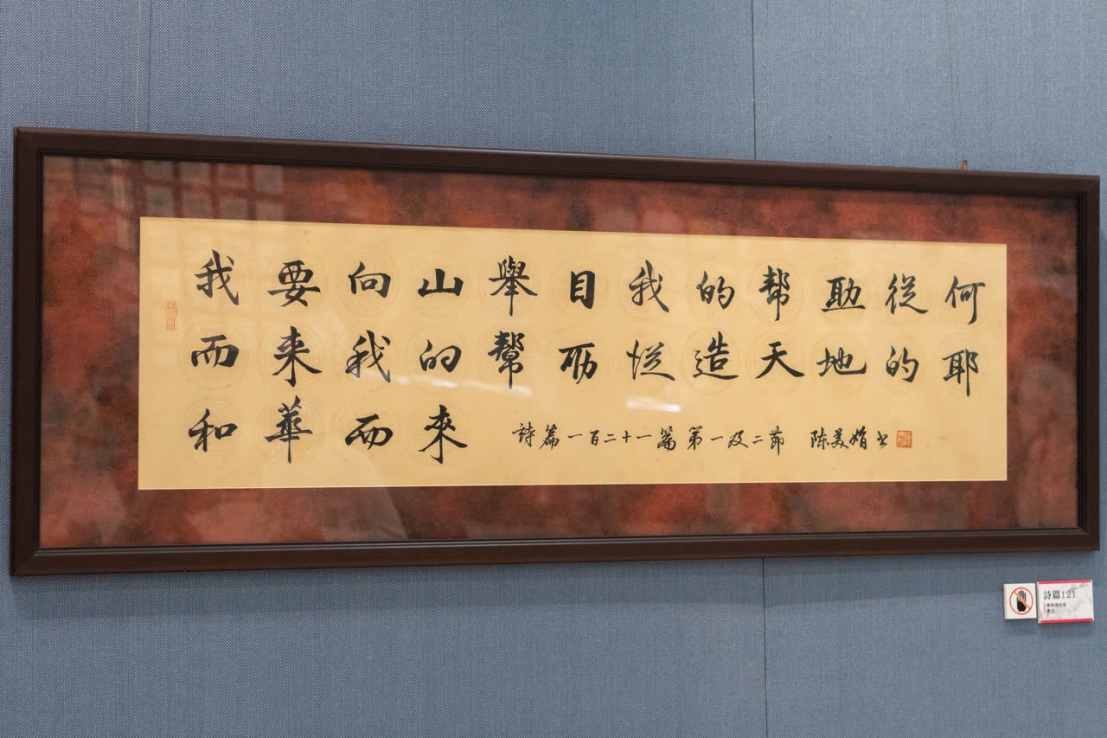 我要向山舉目我的帮助從何
而来我的幫助從造天地的耶
和華而來
詩篇一百二十一篇第一及二節 陈美娟书
詩篇121